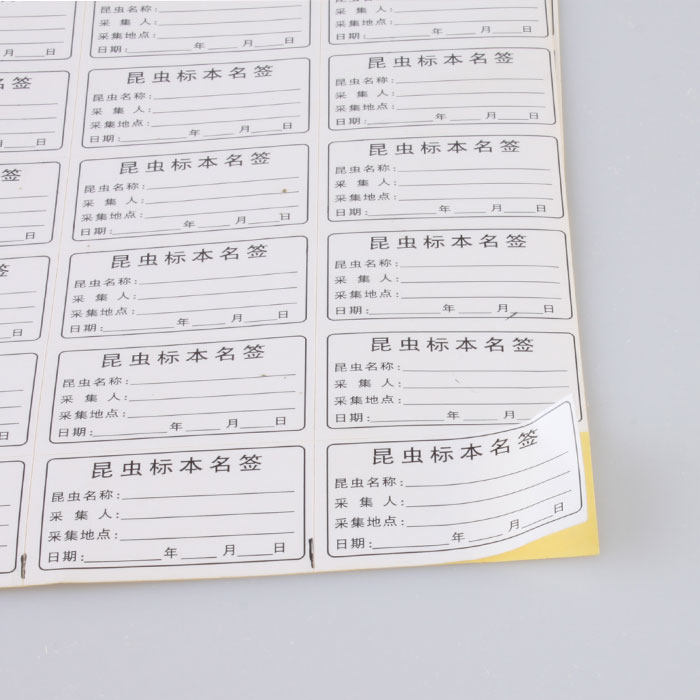 月____日
采 集 人:
采集地点:
日期:________年____月____日
采 集 人:
采集地点:
日期:________年____月____日
名签
日
昆虫标本名签
昆虫名称:
采 集 人:
采集地点:
日期:________年____月____日
昆虫标本名签
昆虫名称:
采 集 人:
采集地点:
日期:________年____月____日
签
日
昆虫标本名签
昆虫名称:
采 集 人:
采集地点:
日期:________年____月____日
昆虫标本名签
昆虫名称:
采 集 人:
采集地点:
日期:________年____月____日
签
日
昆虫标本名签
昆虫名称:
采 集 人:
采集地点:
日期:________年____月____日
昆虫标本名签
昆虫名称:
采 集 人:
采集地点:
日期:________年____月____日
昆虫标本名签
昆虫名称:
采 集 人:
采集地点:
日期:________年____月____日
昆虫标本名签
昆虫名称:
采 集 人:
采集地点:
日期:________年____月
昆虫标本名签
昆虫名称:
采 集 人:
采集地点:
日期:________年____月____日
昆虫标本名签
昆虫名称:
采 集 人:
采集地点:
日期:________年____月____日